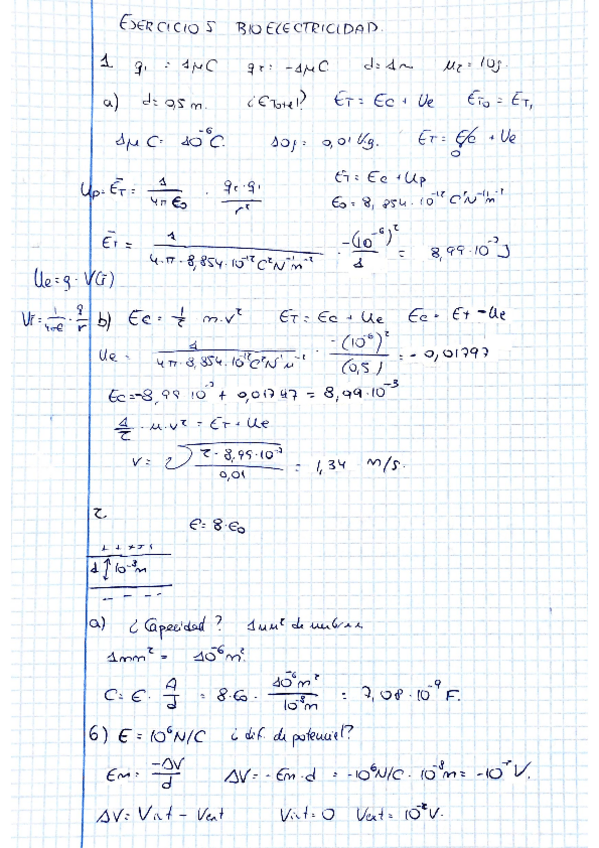 EJERCICIOS BIOELECTRICIDAD.
1 q₁ = 1μC q₂ = -1μC d = 1m m₂ = 10g.
a) d = 0,5 m. ¿ETotal? ET = Ec + Ue ET₀ = ET₁
1μC = 10⁻⁶C. 10g = 0,01 Kg. ET = Ec + Ue
0
Up = ET = 1/(4π ε₀) · q₂·q₁/r² ET = Ec + Up
ε₀ = 8,854·10⁻¹² C²N⁻¹m⁻²
ET = 1/(4·π·8,854·10⁻¹² C²N⁻¹m⁻²) · -(10⁻⁶)²/1 = 8,99·10⁻³J
Ue = q · V(r)
Vr = 1/4πε · q/r b) Ec = 1/2 m·v² ET = Ec + Ue Ec = Et - Ue
Ue = 1/(4π·8,854·10⁻¹²C²N⁻¹m⁻²) · -(10⁻⁶)²/(0,5) = -0,01797
Ec = -8,99·10⁻³ + 0,01797 = 8,99·10⁻³
1/2 · m·v² = ET + Ue
v = 2√(2·8,99·10⁻³/0,01) = 1,34 m/s.
2. ε = 8·ε₀
+ + + + +
d ↕ 10⁻⁸m
- - - -
a) ¿Capacidad? 1mm² de membrana
1mm² = 10⁻⁶m².
C = ε · A/d = 8·ε₀ · 10⁻⁶m²/10⁻⁸m = 7,08·10⁻⁹ F.
b) E = 10⁶N/C ¿dif. de potencial?
Em = -ΔV/d ΔV = -Em·d = -10⁶N/C · 10⁻⁸m = -10⁻² V.
ΔV = Vint - Vext Vint = 0 Vext = 10⁻²V.